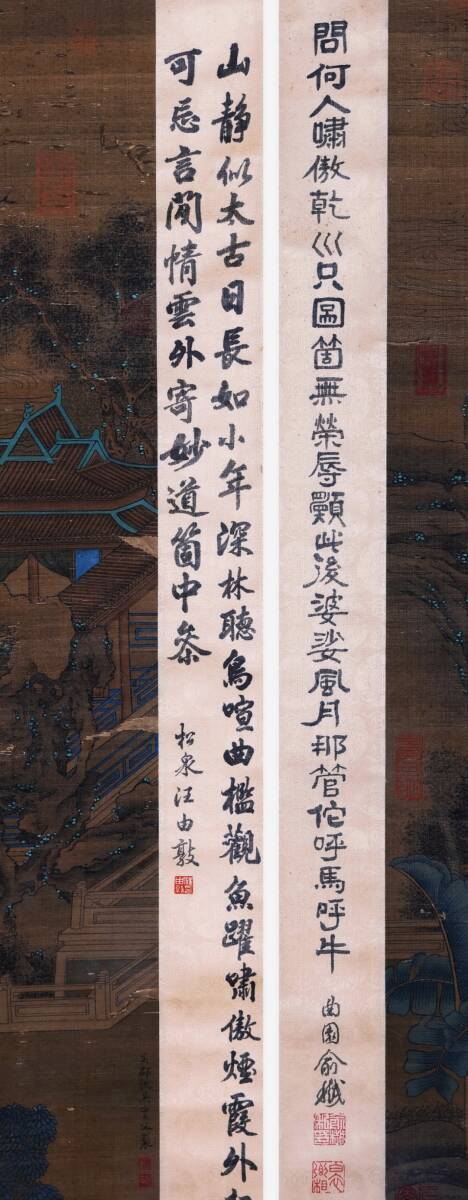 問何人嘯傲乾巛只圖箇無榮辱願此後婆娑風月那管佗呼馬呼牛
曲園俞樾
山靜似太古日長如小年深林聽鳥喧曲檻觀魚躍嘯傲煙霞外
可忘言閒情雲外寄妙道箇中參
松泉汪由敦